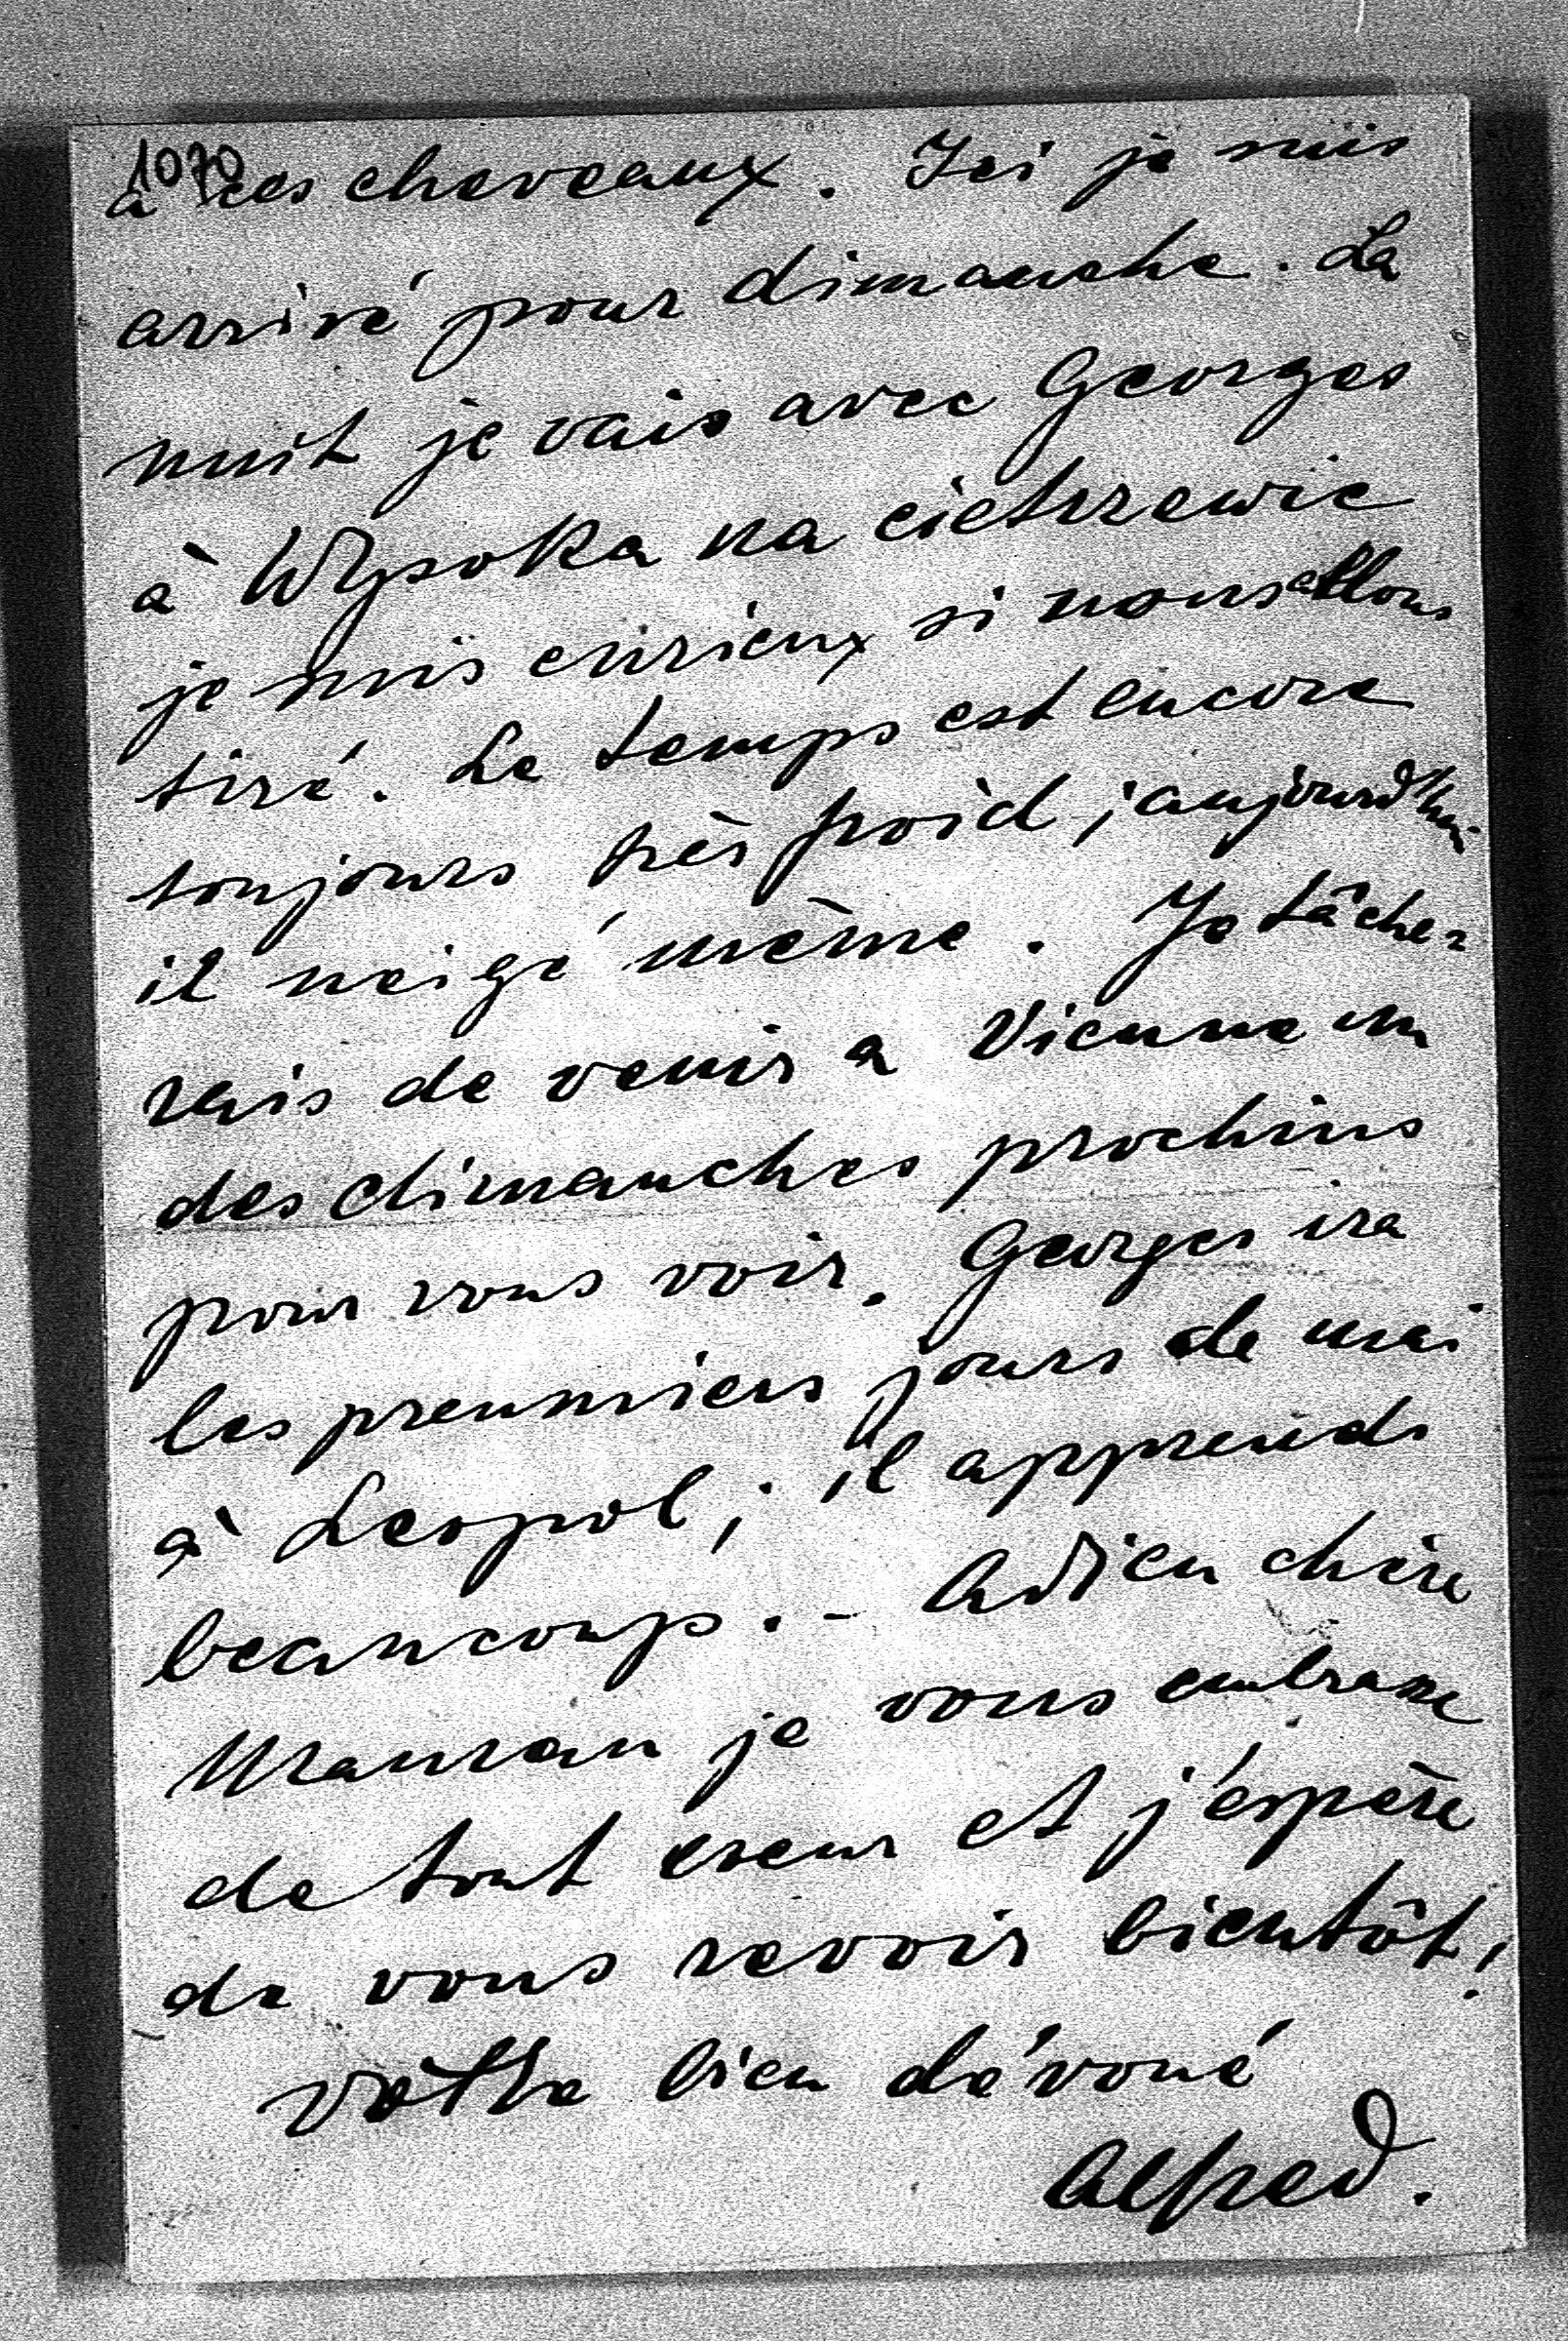 1070
à ces cheveaux. Ici je suis
arrivé pour dimanche. La
nuit je vais avec Georges
à Wysoka na cietrzewie
je suis curieux si nous allons
tiré. Le temps est encore
toujours très froid, aujourd'hui
il neigé même. Je tâche-
rais de venir a Vienne un
des dimanches prochins
pour vous voir. Georges ira
les preumiers jours de mai
à Leopol; il apprends
beaucoup. - Adieu chère
Maman je vous embrasse
de tout coeur et j'éspère
de vous revoir bientôt!
Vôtre bien dévoué
Alfred.